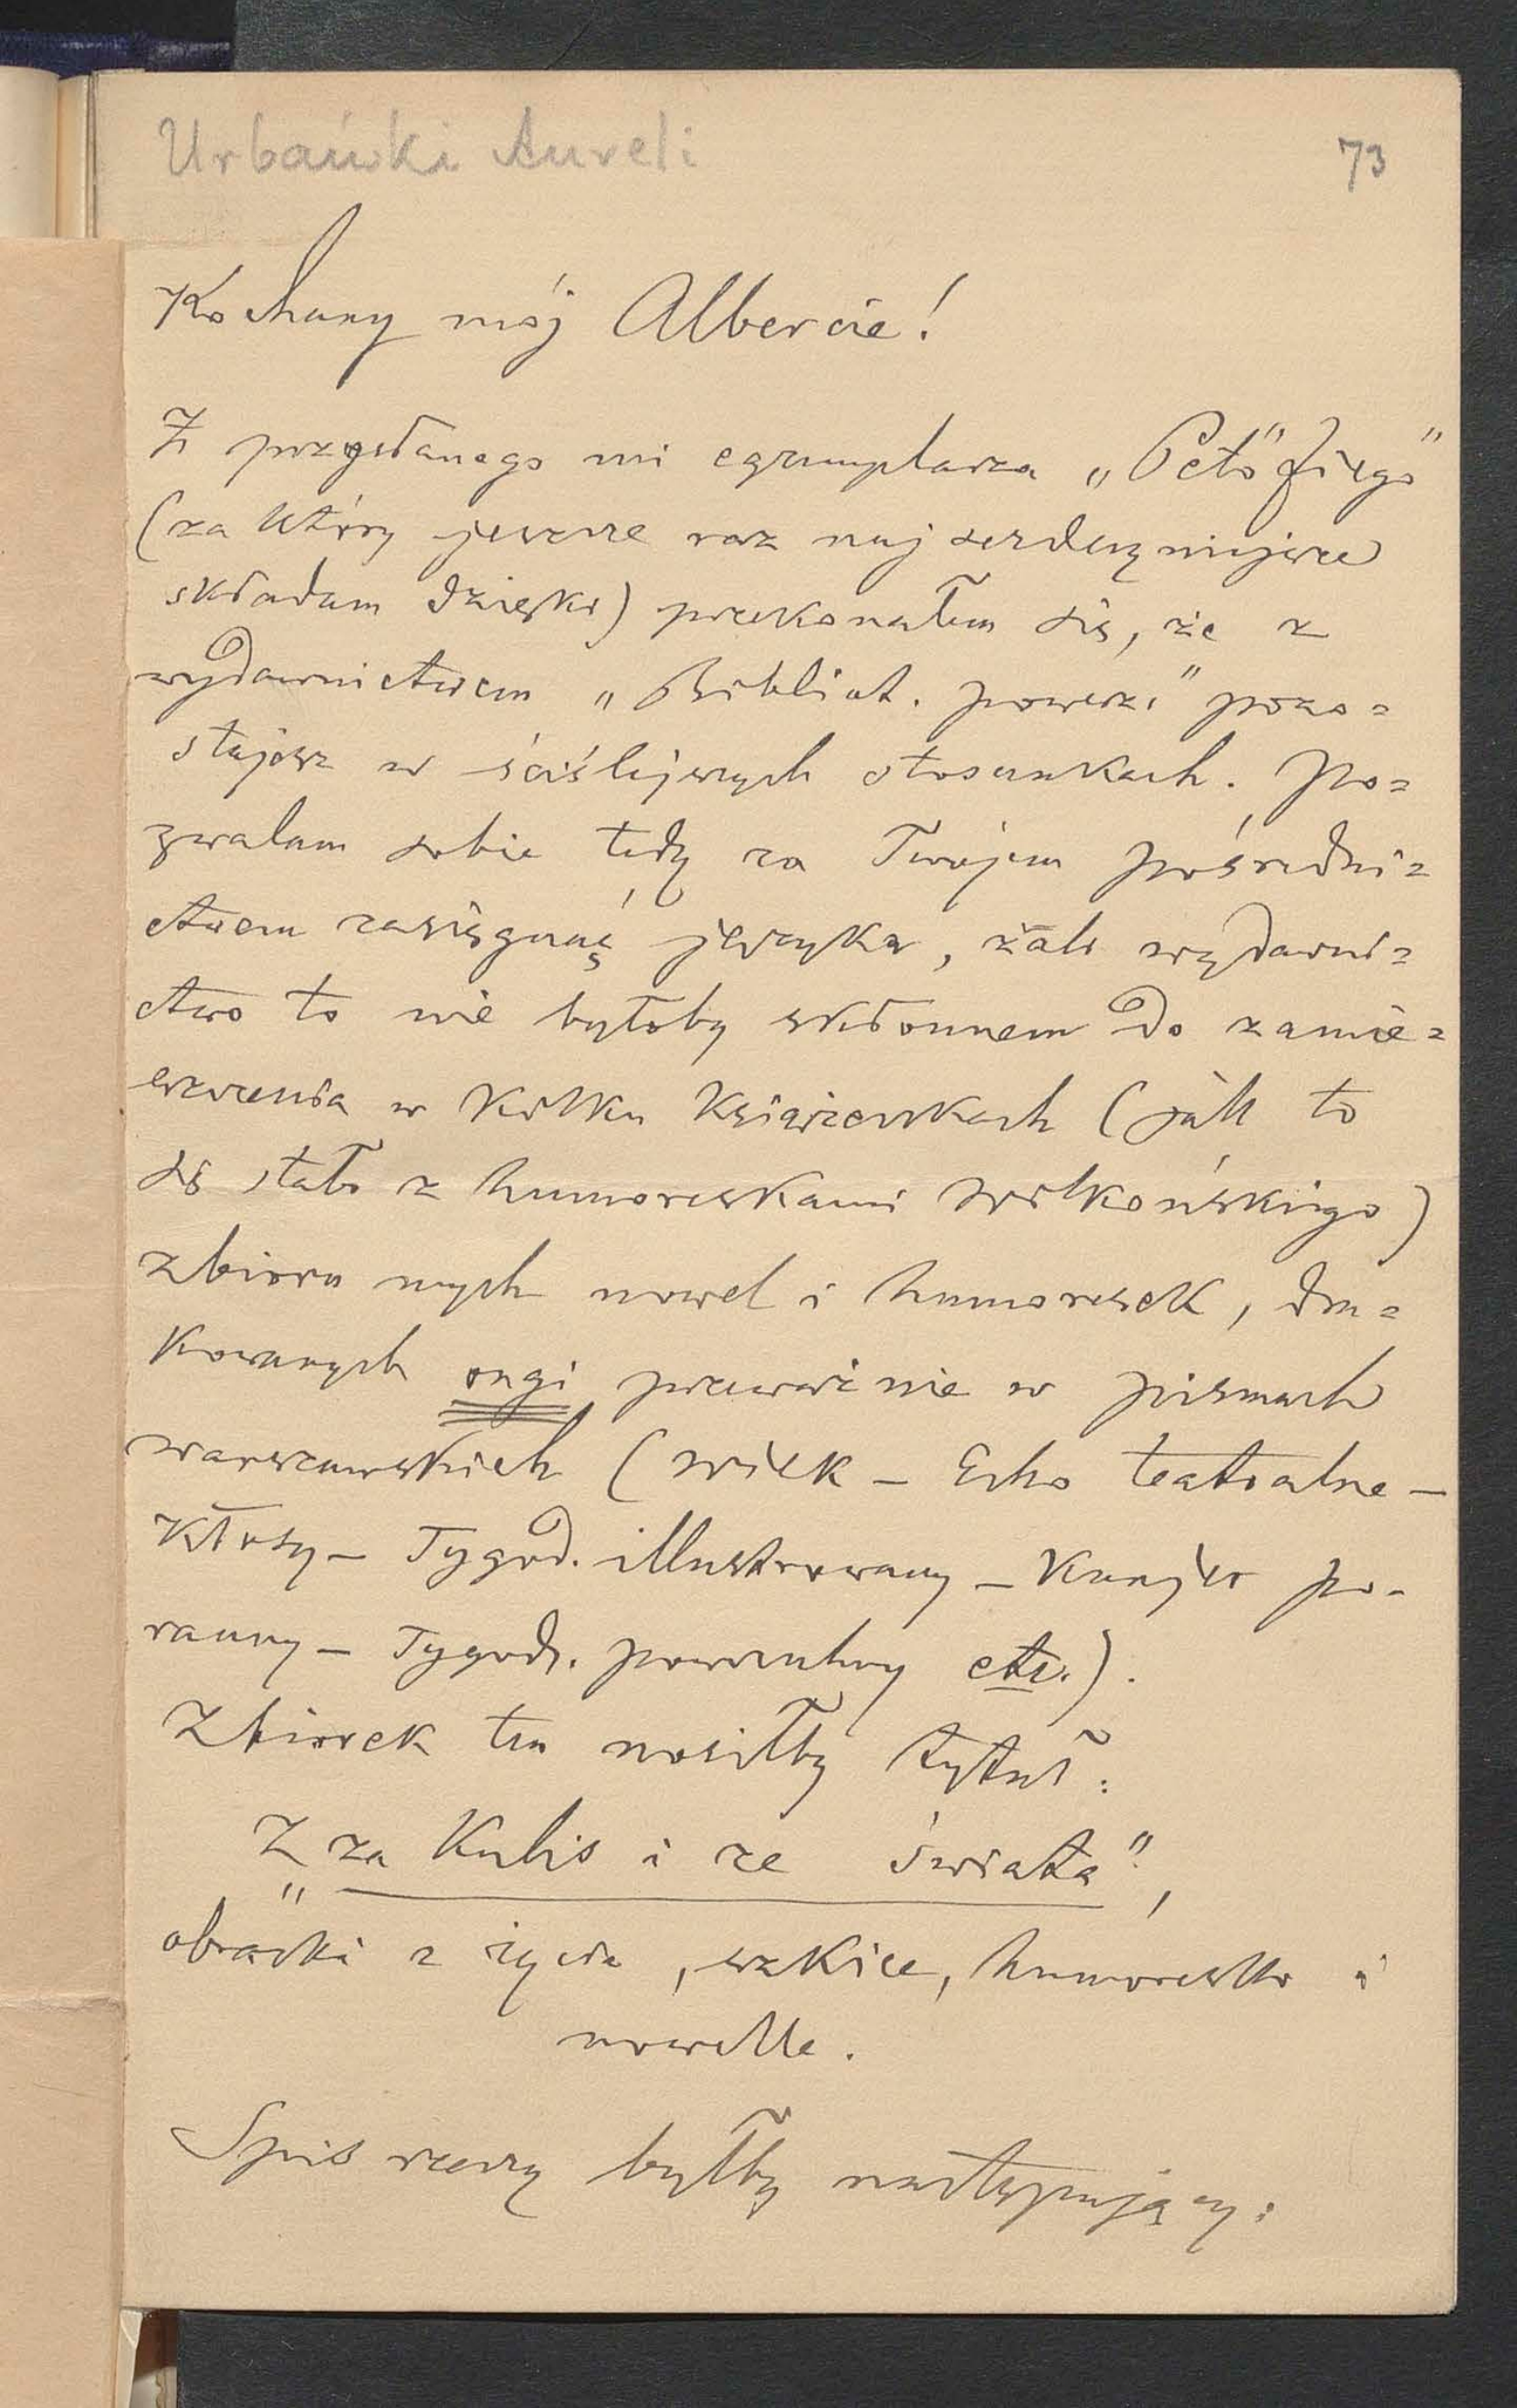 Urbański Aureli
73
Kochany mój Albercie!
Z przysłanego mi egzemplarza „Petőfiego"
(za który jeszcze raz najserdeczniejsze
składam dzięki) przekonałem się, że z
wydawnictwem „Bibliot. powsz." pozo=
stajesz w ściślejszych stosunkach. Po=
zwalam sobie tedy za Twojem pośredni=
ctwem zasięgnąć języka, żali wydawni=
ctwo to nie byłoby skłonnem do zamie=
szczenia w kilku książeczkach (jak to
się stało z humoreskami Wilkońskiego)
zbioru mych nowel i humoresek, dru=
kowanych ongi przeważnie w pismach
warszawskich (Wiek – Echo teatralne –
Kłosy – Tygod. illustrowany – Kuryer po-
ranny – Tygodn. powszechny etc.).
Zbiorek ten nosiłby tytuł:
„Z za kulis i ze świata",
obrazki z życia, szkice, humoreski i
nowelle.
Spis rzeczy byłby następujący: